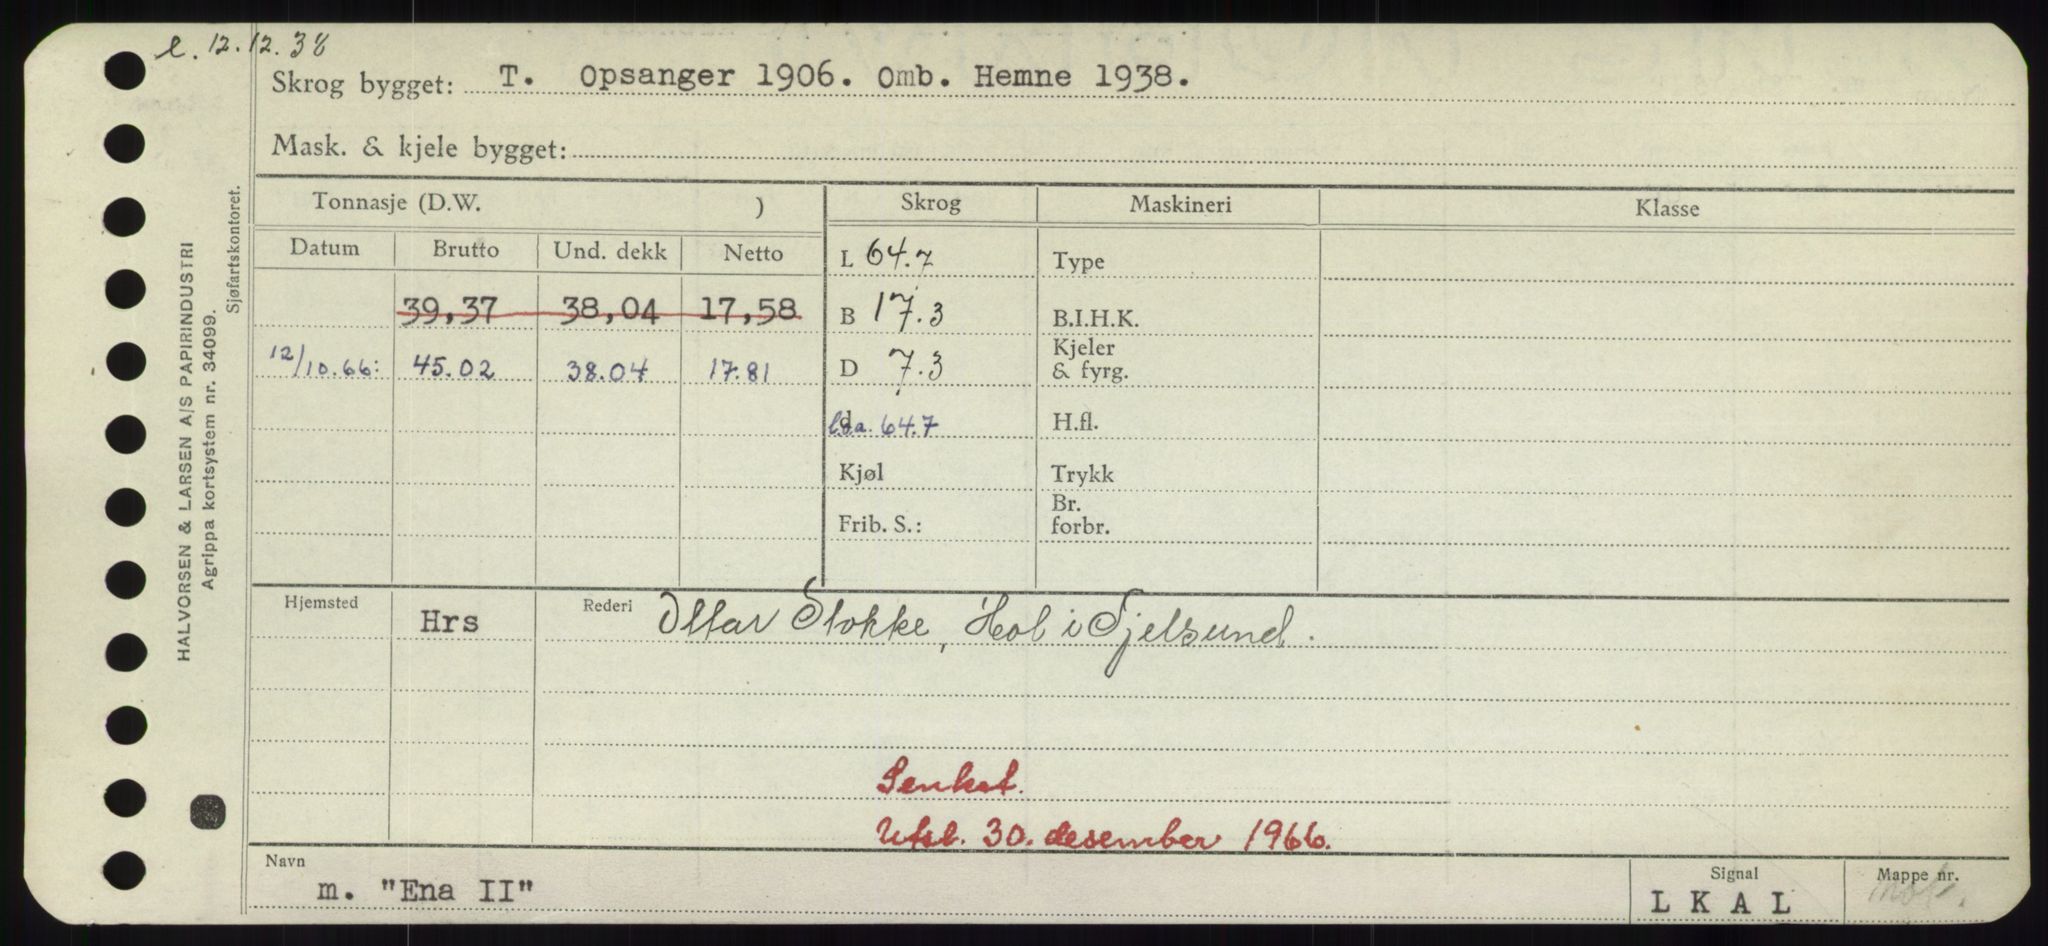 e. 12.12.38
Skrog bygget: T. Opsanger 1906. Omb. Hemne 1938.
Mask. & kjele bygget:
Tonnasje (D.W. ) Skrog Maskineri Klasse
Datum Brutto Und. dekk Netto L 64.7 Type
39,37 38,04 17,58 B 17.3 B.I.H.K.
12/10.66: 45.02 38.04 17.81 D 7.3 Kjeler & fyrg.
l.o.a. 64.7 H.fl.
Kjøl Trykk
Frib. S.: Br. forbr.
Hjemsted Hrs Rederi Ottar Stokke, Hol i Tjelsund.
Senket.
Utsl. 30. desember 1966.
Navn m. "Ena II" Signal L K A L Mappe nr.
HALVORSEN & LARSEN A/S PAPIRINDUSTRI
Agrippa kortsystem nr. 34099.
Sjøfartskontoret.